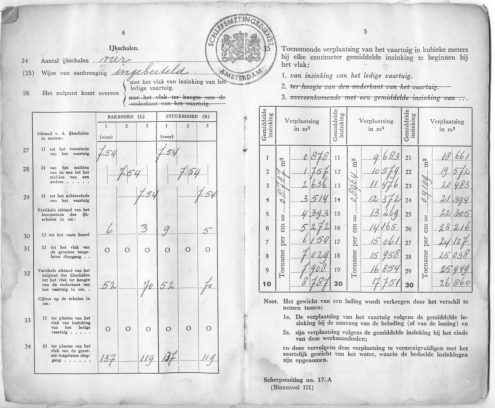 4
IJkschalen.
24 Aantal ijkschalen vier
(25) Wijze van aanbrenging ingebeiteld
26 Het nulpunt komt overeen
met het vlak van inzinking van het
ledige vaartuig.
met het vlak ter hoogte van de
onderkant van het vaartuig.
SCHEEPSMETINGSDIENST
AMSTERDAM
BAKBOORD (L) STUURBOORD (R)
1 2 1 2
(voor) (voor)
Afstand v. d. ijkschalen
in meters:
27 1) tot het vooreinde
van het vaartuig
7.54 7.54
28 2) van het midden
van de ene tot het
midden van een
andere
7.54 7.54
29 3) tot het achtereinde
van het vaartuig
7.54 7.54
Vertikale afstand van het
beneneinde der ijk-
schalen in cm:
30 1) tot het vaste boord
6 3 9 5
31 2) tot het vlak van
de grootste toege-
laten diepgang
O O O O
32 Vertikale afstand van het
nulpunt der ijkschalen
tot het vlak ter hoogte
van de onderkant van
het vaartuig in cm
52 70 52 70
Cijfers op de schalen in
cm:
33 1) ter plaatse van het
vlak van inzinking
van het ledige
vaartuig
O O O O
34 2) ter plaatse van het
vlak van de groot-
ste toegelaten diep-
gang
137 119 137 119
5
Toenemende verplaatsing van het vaartuig in kubieke meters
bij elke centimeter gemiddelde inzinking te beginnen bij
het vlak:
1. van inzinking van het ledige vaartuig.
2. ter hoogte van den onderkant van het vaartuig.
3. overeenkomende met een gemiddelde inzinking van
Gemiddelde inzinking Verplaatsing in m³ Gemiddelde inzinking Verplaatsing in m³ Gemiddelde inzinking Verplaatsing in m³
1 0.878 11 9.683 21 18.661
2 1.757 12 10.579 22 19.572
3 2.636 13 11.476 23 20.483
4 3.514 14 12.372 24 21.394
5 4.393 15 13.269 25 22.305
6 5.272 16 14.165 26 23.216
7 6.150 17 15.061 27 24.127
8 7.029 18 15.958 28 25.038
9 7.908 19 16.854 29 25.949
10 8.787 20 17.751 30 26.860
Toename per cm = m³
Toename per cm = m³
Toename per cm = m³
Noot. Het gewicht van een lading wordt verkregen door het verschil te
nemen tussen:
1e. De verplaatsing van het vaartuig volgens de gemiddelde in-
zinking bij de aanvang van de belading (of van de lossing) en
2e. zijn verplaatsing volgens de gemiddelde inzinking bij het einde
van deze werkzaamheden;
en door vervolgens deze verplaatsing te vermenigvuldigen met het
soortelijk gewicht van het water, waarin de bedoelde inzinkingen
zijn opgenomen.
Scheepsmeting no. 17.A
(Binnenvel III)